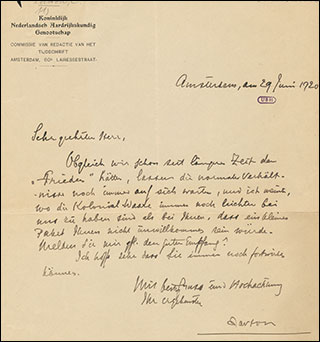 Koninklijk
Nederlandsch Aardrijkskundig
Genootschap
COMMISSIE VAN REDACTIE VAN HET
TIJDSCHRIFT
AMSTERDAM, LAIRESSESTRAAT.
Amsterdam, am 29 Juni 1920
Sehr geehrter Herr,
Obgleich wir schon seit längerer Zeit den
„Frieden" hätten, lassen die normalen Verhält-
nisse noch immer auf sich warten, und ich meinte,
wo die Kolonial Waare immer noch leichter bei
uns zu haben sind als bei Ihnen, dass ein kleines
Paket Ihnen nicht unwillkommen sein würde.
Melden Sie mir gfl. den guten Empfang?
Ich hoffe sehr dass Sie immer noch
können.
Mit und Hochachtung
Ihr ergebenster